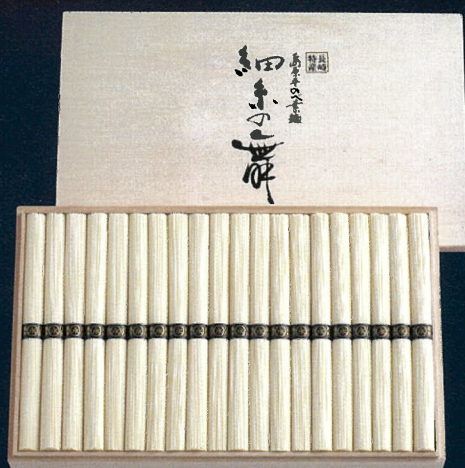 長崎
特産
島原手のべ素麺
細糸の舞